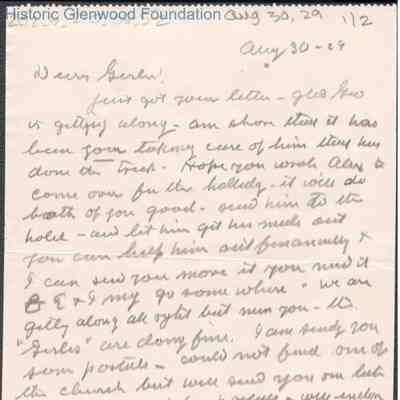 Historic Glenwood Foundation
Aug 30, 29 1/2
Aug 30-29
Dear Girlie!
Just got your letter - glad Geo
is getting along - am shore that it has
been your taking care of him that has
done the trick. Hope you work Alex to
come over for the holiday - it will do
both of you good - send him to the
hotel - and let him get his meals out
you can help him out financially &
I can send you more if you need it
E & I may go some where - we are
getting along all right but miss you - the
"Girlies" are doing fine. I am sending you
some postals - could not find one of
the church but will send you one later